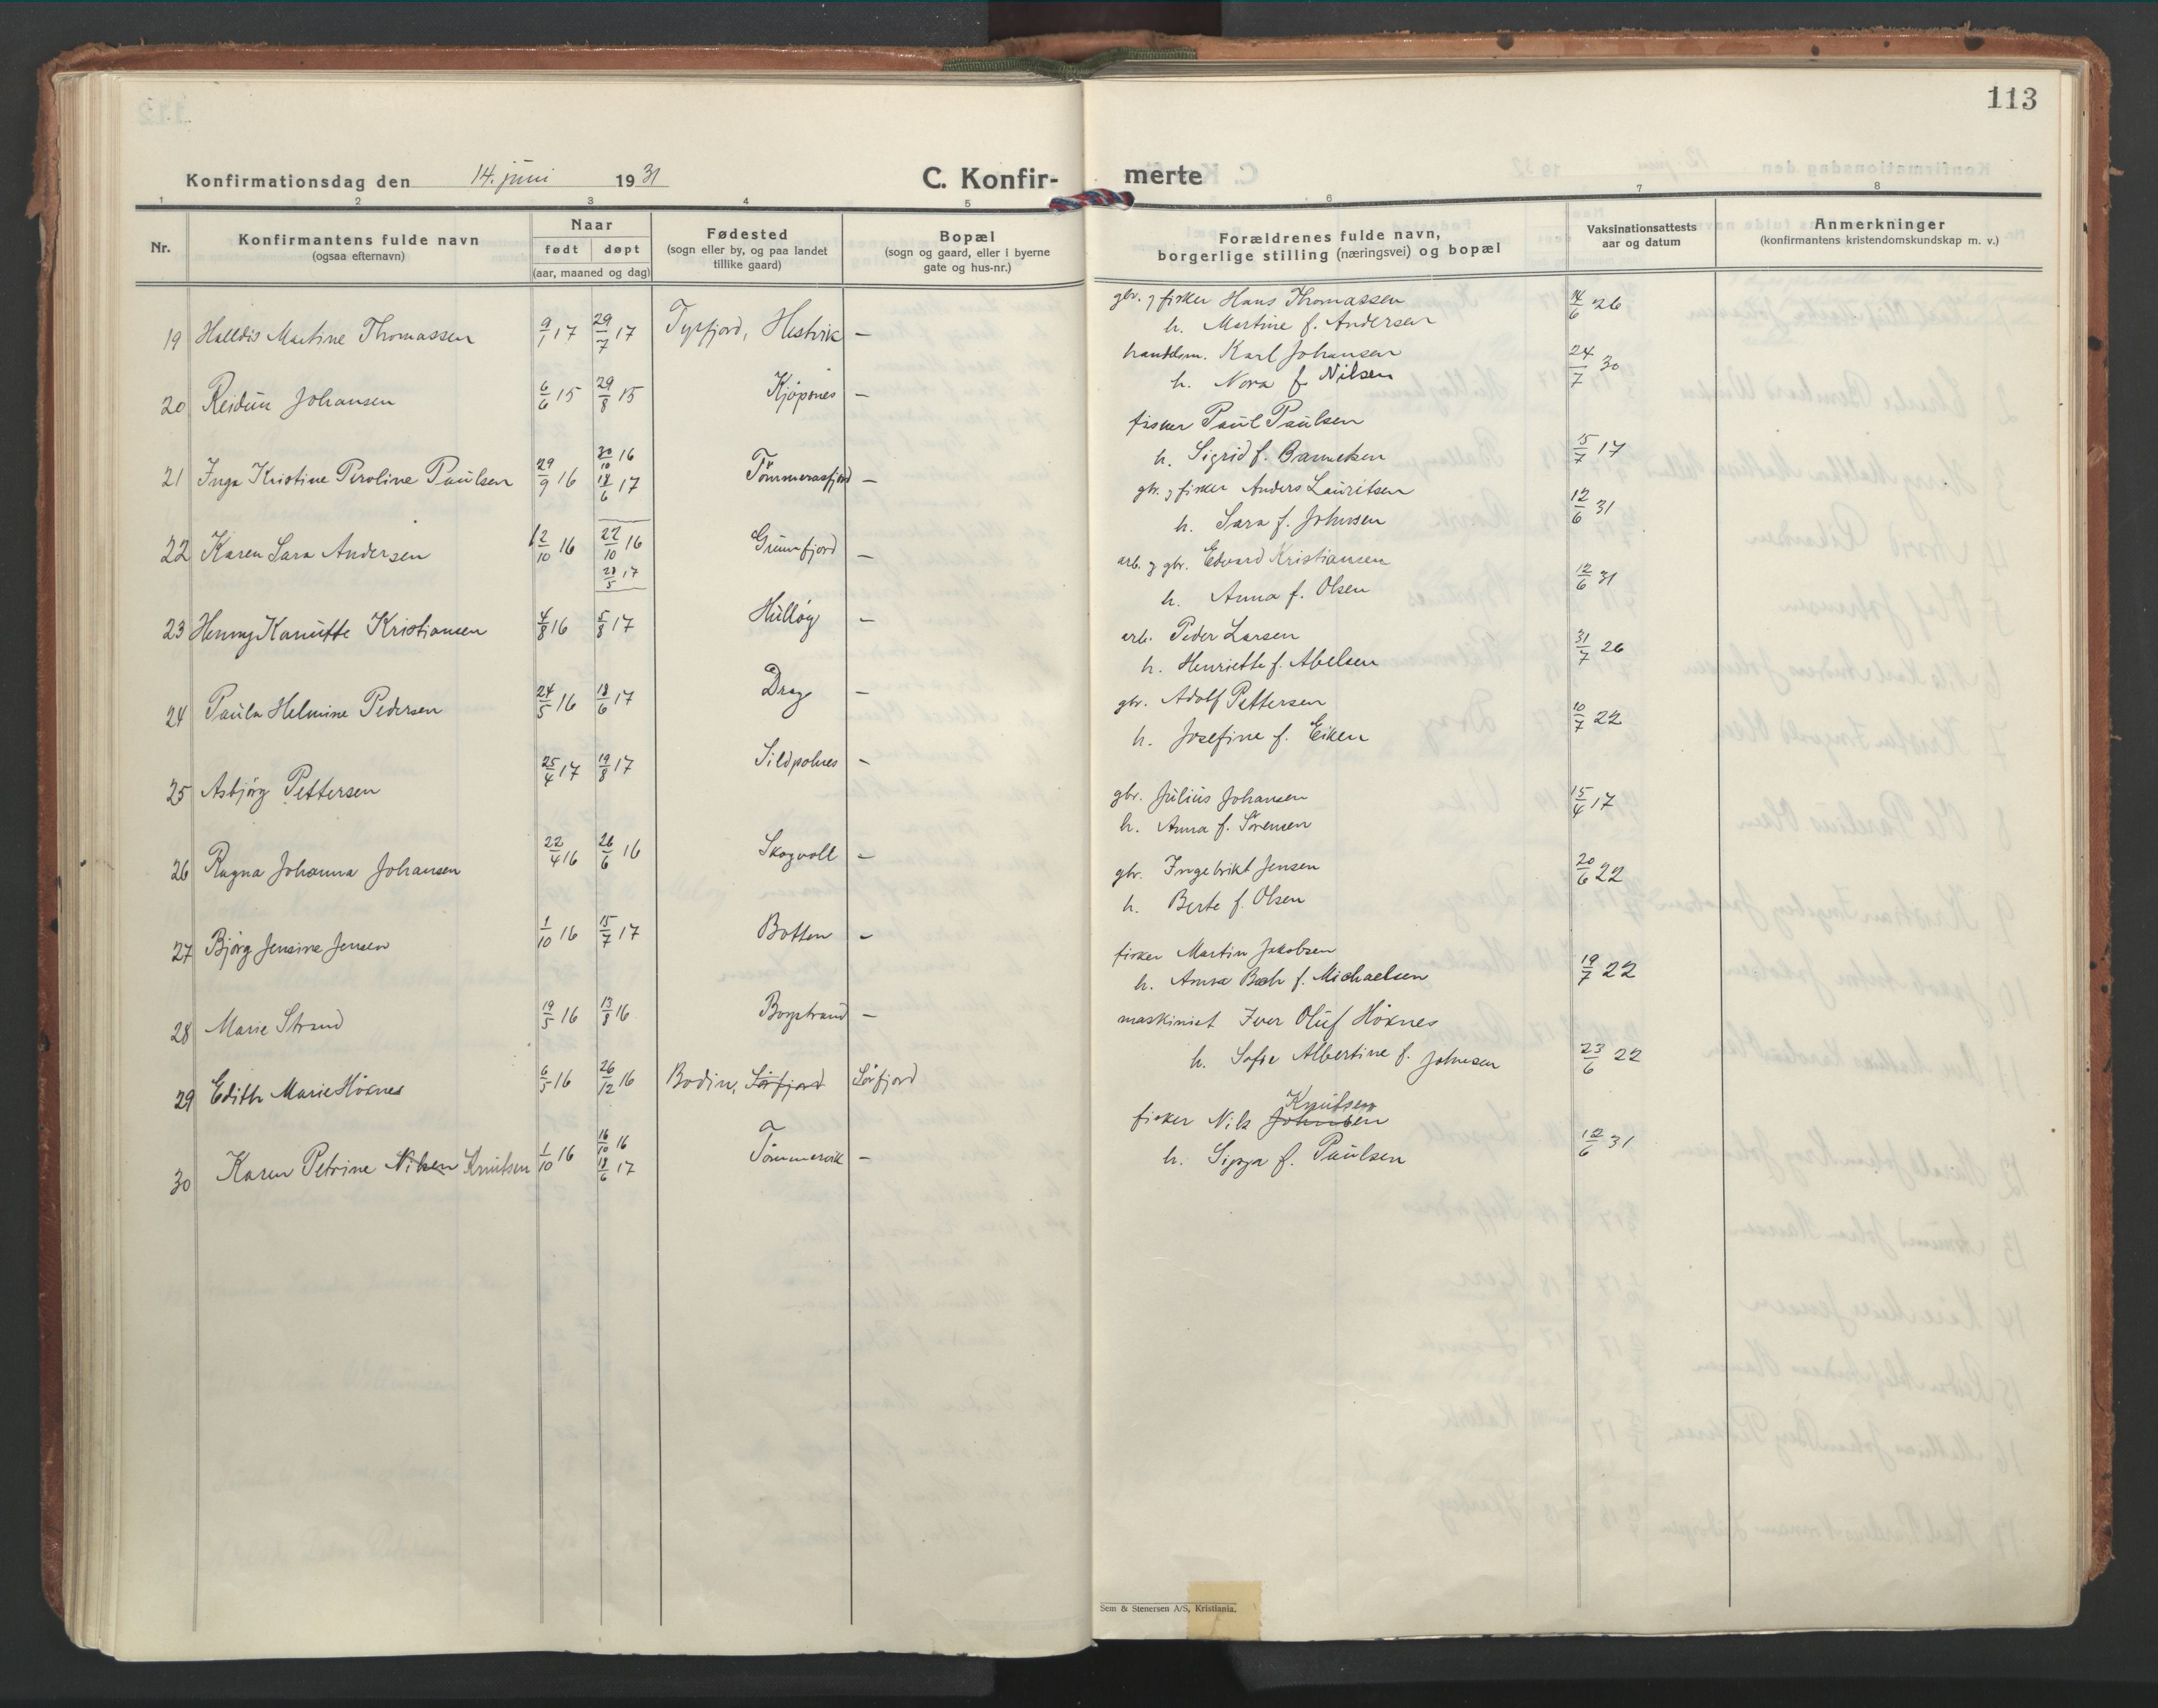 113
Konfirmationsdag den 14. juni 1931 C. Konfir- merte
1 2 3 4 5 6 7 8
Nr. Konfirmantens fulde navn (ogsaa efternavn) Naar født døpt (aar, maaned og dag) Fødested (sogn eller by, og paa landet tillike gaard) Bopæl (sogn og gaard, eller i byerne gate og hus-nr.) Forældrenes fulde navn, borgerlige stilling (næringsvei) og bopæl Vaksinationsattests aar og datum Anmerkninger (konfirmantens kristendomskundskap m. v.)
19 Halldis Martine Thomassen 9/1 17 29/7 17 Tysfjord, Hestvik — gbr. & fisker Hans Thomassen 14/6 26
h. Martine f. Andersen
20 Reidun Johansen 6/6 15 29/8 15 Kjøpsnes — handelsm. Karl Johansen 24/7 30
h. Nora f. Nilsen
21 Inga Kristine Peroline Paulsen 29/9 16 30/10 16 18/6 17 Tømmeraasfjord — fisker Paul Paulsen
h. Sigrid f. 15/7 17
22 Karen Sara Andersen 12/10 16 22/10 16 28/5 17 Grunnfjord — gbr. & fisker Anders Lauritsen 12/6 31
h. Sara f. Johnsen
23 Henny Kanutte Kristiansen 4/8 16 5/8 17 Hulløy — arb. & gbr. Edvard Kristiansen 12/6 31
h. Anna f. Olsen
24 Paula Helmine Pedersen 24/5 16 18/6 17 Drag — arb. Peder Larsen 31/7 26
h. Henriette f. Abelsen
25 Asbjørg Pettersen 25/4 17 19/8 17 Sildpolnes — gbr. Adolf Pettersen 10/7 22
h. Josefine f. Eiken
26 Ragna Johanna Johansen 22/4 16 26/6 16 Skogvoll — gbr. Julius Johansen 15/4 17
h. Anna f. Sørensen
27 Bjørg Jensine Jensen 1/10 16 15/7 17 Botten — gbr. Ingebrikt Jensen 20/6 22
h. Berte f. Olsen
28 Marie Strand 19/5 16 13/8 16 Borgstrand — fisker Martin Jakobsen
h. Anna Bach f. Michaelsen 19/7 22
29 Edith Marie Høknes 6/5 16 26/12 16 Bodin, Sørfjord Sørfjord maskinist Iver Oluf Høknes
h. Sofie Albertine f. Johnsen 23/6 22
30 Karen Petrine Nilsen Knutsen 1/10 16 16/10 16 18/6 17 Tømmervik — fisker Nils Johnsen Knutsen
h. Sigga f. Paulsen 12/6 31
Sem & Stenersen A/S, Kristiania.